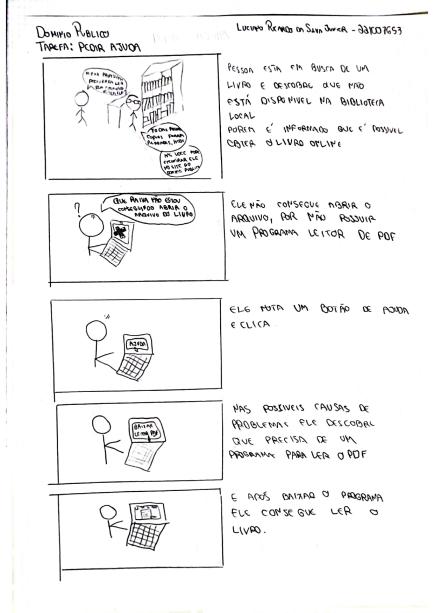 DOMINIO PUBLICO
LUCIANO RICARDO DA SILVA JUNIOR - 221007653
TAREFA: PEDIR AJUDA
PESSOA ESTA EM BUSCA DE UM
LIVRO E DESCOBRE QUE NÃO
ESTÁ DISPONIVEL NA BIBLIOTECA
LOCAL
POREM É INFORMADO QUE É POSSIVEL
OBTER O LIVRO ONLINE
MAS VOCE PODE
ENCONTRAR ELE
NO SITE DO
DOMINIO PUBLICO
?
QUE RAIVA NÃO ESTOU
CONSEGUINDO ABRIR O
ARQUIVO DO LIVRO
ELE NÃO CONSEGUE ABRIR O
ARQUIVO, POR NÃO POSSUIR
UM PROGRAMA LEITOR DE PDF
AJUDA
ELE NOTA UM BOTÃO DE AJUDA
E CLICA
BAIXAR
LEITOR PDF
NAS POSSIVEIS CAUSAS DE
PROBLEMAS ELE DESCOBRE
QUE PRECISA DE UM
PROGRAMA PARA LER O PDF
E APÓS BAIXAR O PROGRAMA
ELE CONSEGUE LER O
LIVRO.